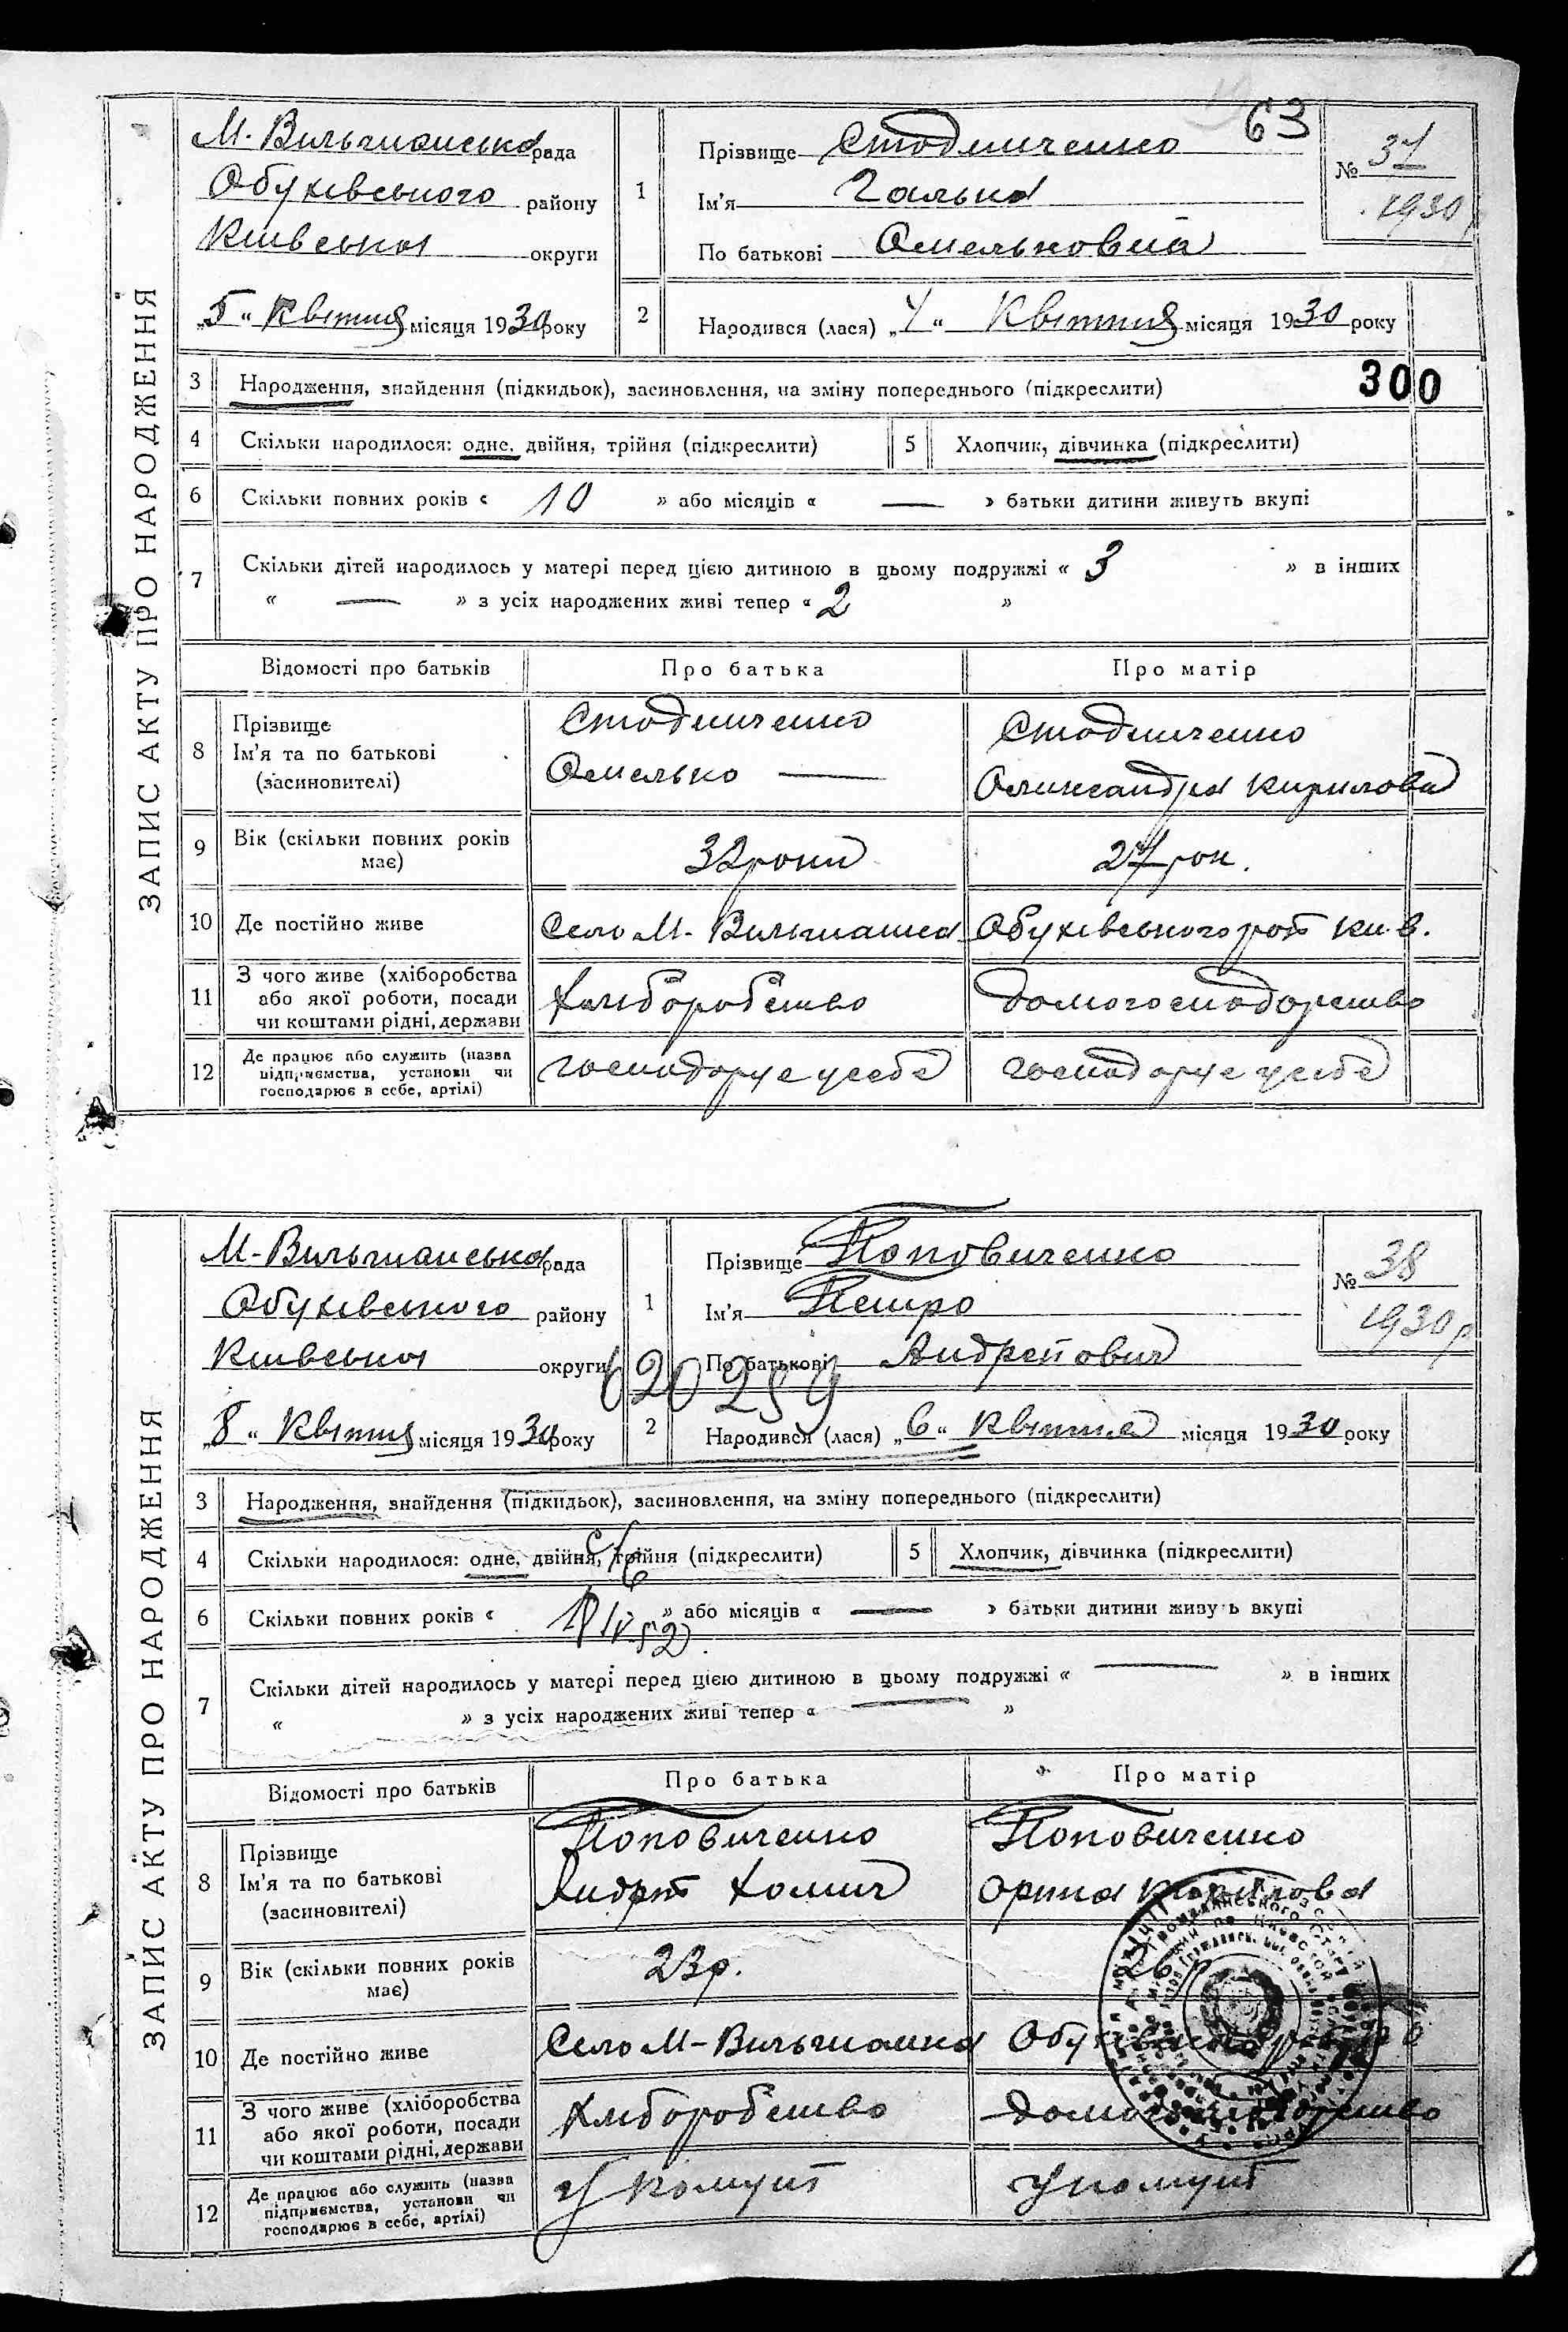 63
ЗАПИС АКТУ ПРО НАРОДЖЕННЯ
М. Вильшанська рада
Обухівського району
Київської округи
„5“ Квітня місяця 1930 року
1
Прізвище Стодниченко
Ім'я Галька
По батькові Омельковна
№ 37
1930 р
2
Народився (лася) „4“ Квітня місяця 1930 року
3
Народження, знайдення (підкидьок), засиновлення, на зміну попереднього (підкреслити)
300
4
Скільки народилося: одне, двійня, трійня (підкреслити)
5
Хлопчик, дівчинка (підкреслити)
6
Скільки повних років « 10 » або місяців « — » батьки дитини живуть вкупі
7
Скільки дітей народилось у матері перед цією дитиною в цьому подружжі « 3 » в інших
« — » з усіх народжених живі тепер « 2 »
Відомості про батьків
Про батька
Про матір
8
Прізвище
Ім'я та по батькові
(засиновителі)
Стодниченко
Омелько —
Стодниченко
Олександра Кирилова
9
Вік (скільки повних років
має)
32 роки
27 рок.
10
Де постійно живе
Село М. Вильшанка
Обухівського рай Киів.
11
З чого живе (хліборобства
або якої роботи, посади
чи коштами рідні, держави
Хліборобство
домогосподарство
12
Де працює або служить (назва
підприємства, установи чи
господарює в себе, артілі)
господарує у себе
господарує у себе
ЗАПИС АКТУ ПРО НАРОДЖЕННЯ
М-Вильшанська рада
Обухівського району
Київської округи
„8“ Квітня місяця 1930 року
1
Прізвище Поповиченко
Ім'я Петро
По батькові Андрейович
№ 38
1930 р
2
Народився (лася) „6“ Квітня місяця 1930 року
3
Народження, знайдення (підкидьок), засиновлення, на зміну попереднього (підкреслити)
4
Скільки народилося: одне, двійня, трійня (підкреслити)
5
Хлопчик, дівчинка (підкреслити)
6
Скільки повних років « » або місяців « — » батьки дитини живуть вкупі
7
Скільки дітей народилось у матері перед цією дитиною в цьому подружжі « — » в інших
« » з усіх народжених живі тепер « — »
Відомості про батьків
Про батька
Про матір
8
Прізвище
Ім'я та по батькові
(засиновителі)
Поповиченко
Андрей Хомич
Поповиченко
Орина Кирилова
9
Вік (скільки повних років
має)
23 р.
26
10
Де постійно живе
Село М-Вильшанка
11
З чого живе (хліборобства
або якої роботи, посади
чи коштами рідні, держави
Хліборобство
домогосподарство
12
Де працює або служить (назва
підприємства, установи чи
господарює в себе, артілі)
У комуні
У комуні